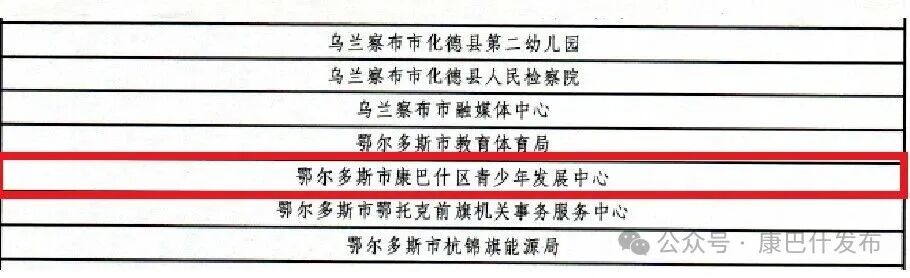 乌兰察布市化德县第二幼儿园
乌兰察布市化德县人民检察院
乌兰察布市融媒体中心
鄂尔多斯市教育体育局
鄂尔多斯市康巴什区青少年发展中心
鄂尔多斯市鄂托克前旗机关事务服务中心
鄂尔多斯市杭锦旗能源局
公众号·康巴什发布